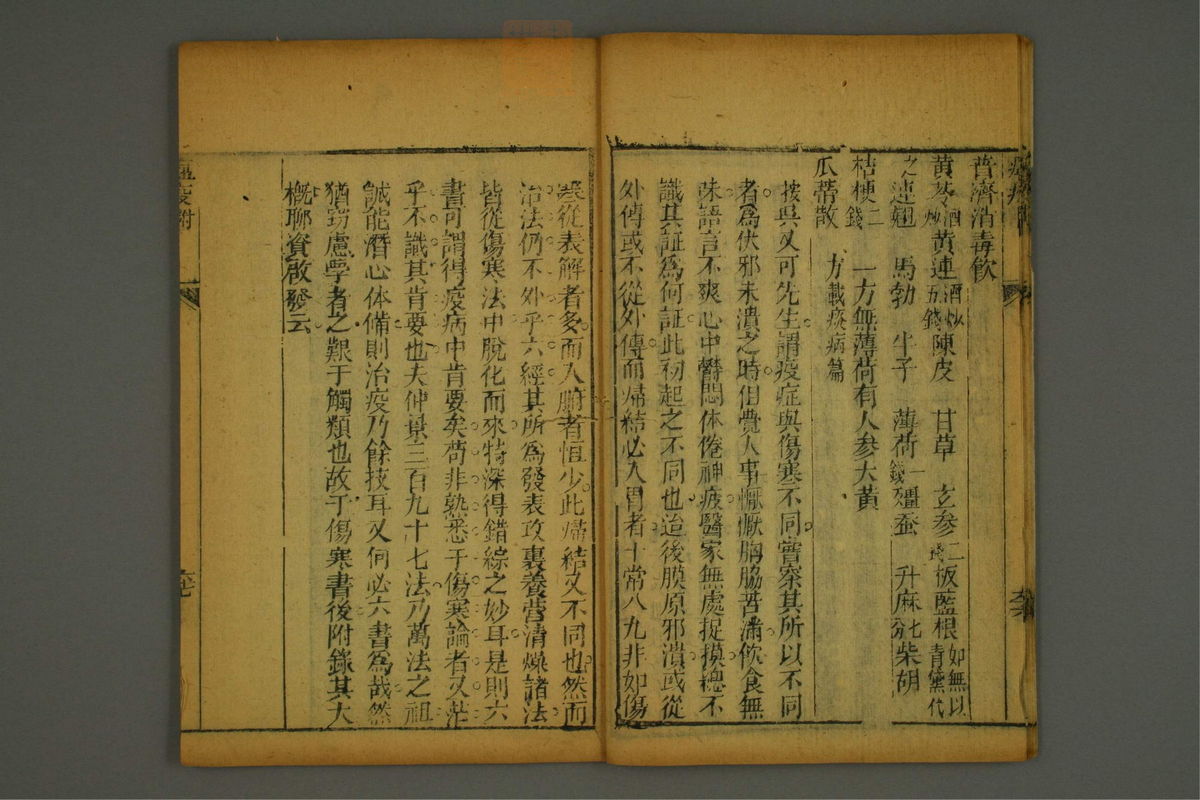 普濟消毒飲
黃芩酒炒黃連酒炒五錢陳皮 甘草 玄參二錢板藍根如無以青黛代
之連翹 馬勃 牛子 薄荷一錢殭蠶 升麻七分柴胡
桔梗二錢 一方無薄荷有人參大黃
瓜蒂散 方載痰病篇
按吳又可先生謂疫症與傷寒不同嘗察其所以不同
者為伏邪未潰之時但覺人事懨懨胸脇苦滿飲食無
味語言不爽心中欝悶体倦神疲醫家無處捉摸總不
識其証為何証此初起之不同也迨後膜原邪潰或從
外傳或不從外傳而歸結必入胃者十常八九非如傷
寒從表解者多而入腑者恒少此歸結又不同也然而
治法仍不外乎六經其所為發表攻裏養營清燥諸法
皆從傷寒法中脫化而來特深得錯綜之妙耳是則六
書可謂得疫病中肯要矣苟非熟悉于傷寒論者又茫
乎不識其肯要也夫仲景三百九十七法乃萬法之祖
誠能潛心体備則治疫乃餘技耳又何必六書為哉然
猶窃慮學者之艱于觸類也故于傷寒書後附錄其大
概聊資啟發云
瘟疫附